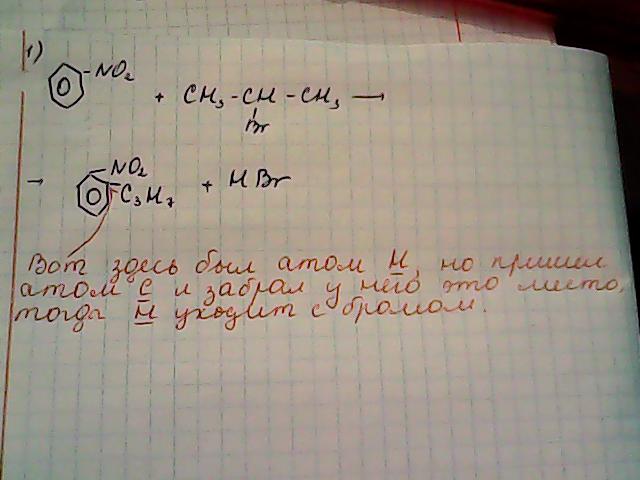 1)
-NO₂
+ CH₃-CH-CH₃ →
Br
→ -NO₂
C₃H₇ + HBr
Вот здесь был атом H, но пришел
атом C и забрал у него это место,
тогда H уходит с бромом.